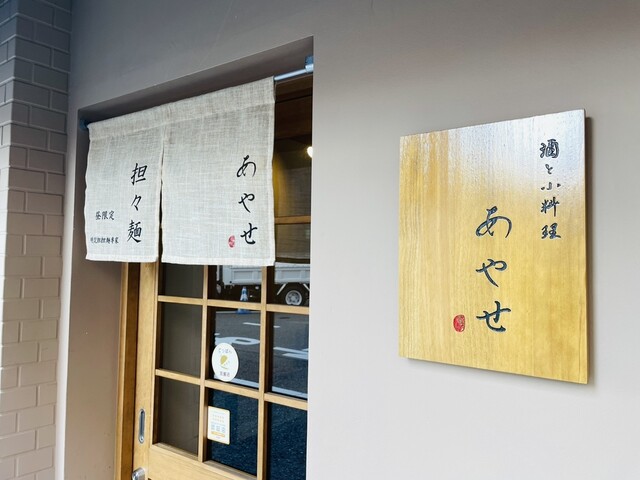 あやせ
担々麺
昼限定
酒と小料理
あやせ